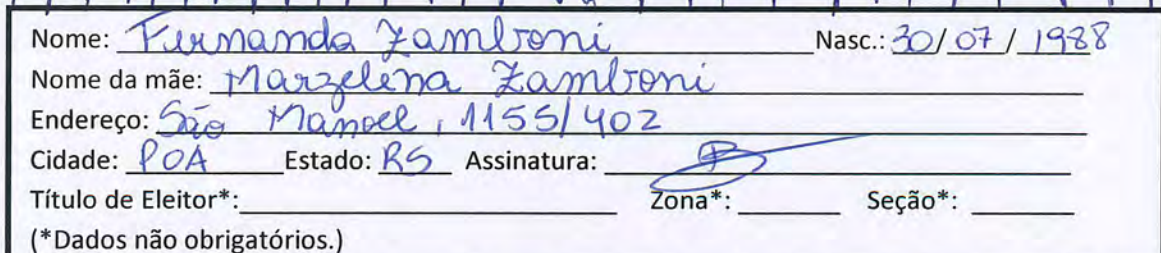 Nome: Fernanda Zamboni Nasc.: 30/07/1988
Nome da mãe: Marzelena Zamboni
Endereço: São Manoel, 1155/402
Cidade: POA Estado: RS Assinatura:
Título de Eleitor*: Zona*: Seção*:
(*Dados não obrigatórios.)